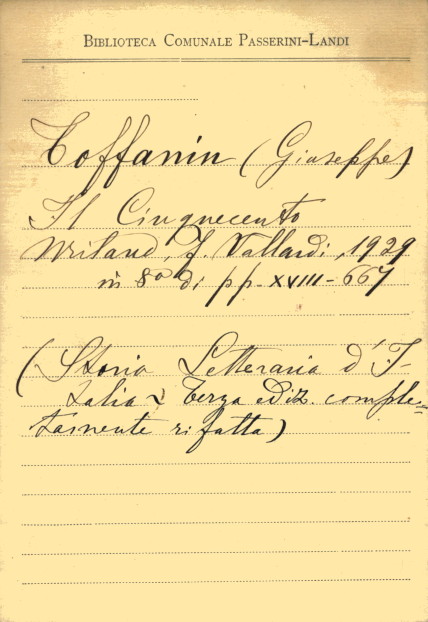 BIBLIOTECA COMUNALE PASSERINI-LANDI
Toffanin (Giuseppe)
Il Cinquecento
Milano, F. Vallardi, 1929
in 8º di pp. XVIII-667
(Storia Letteraria d'I-
talia - Terza ediz. comple=
tamente rifatta)